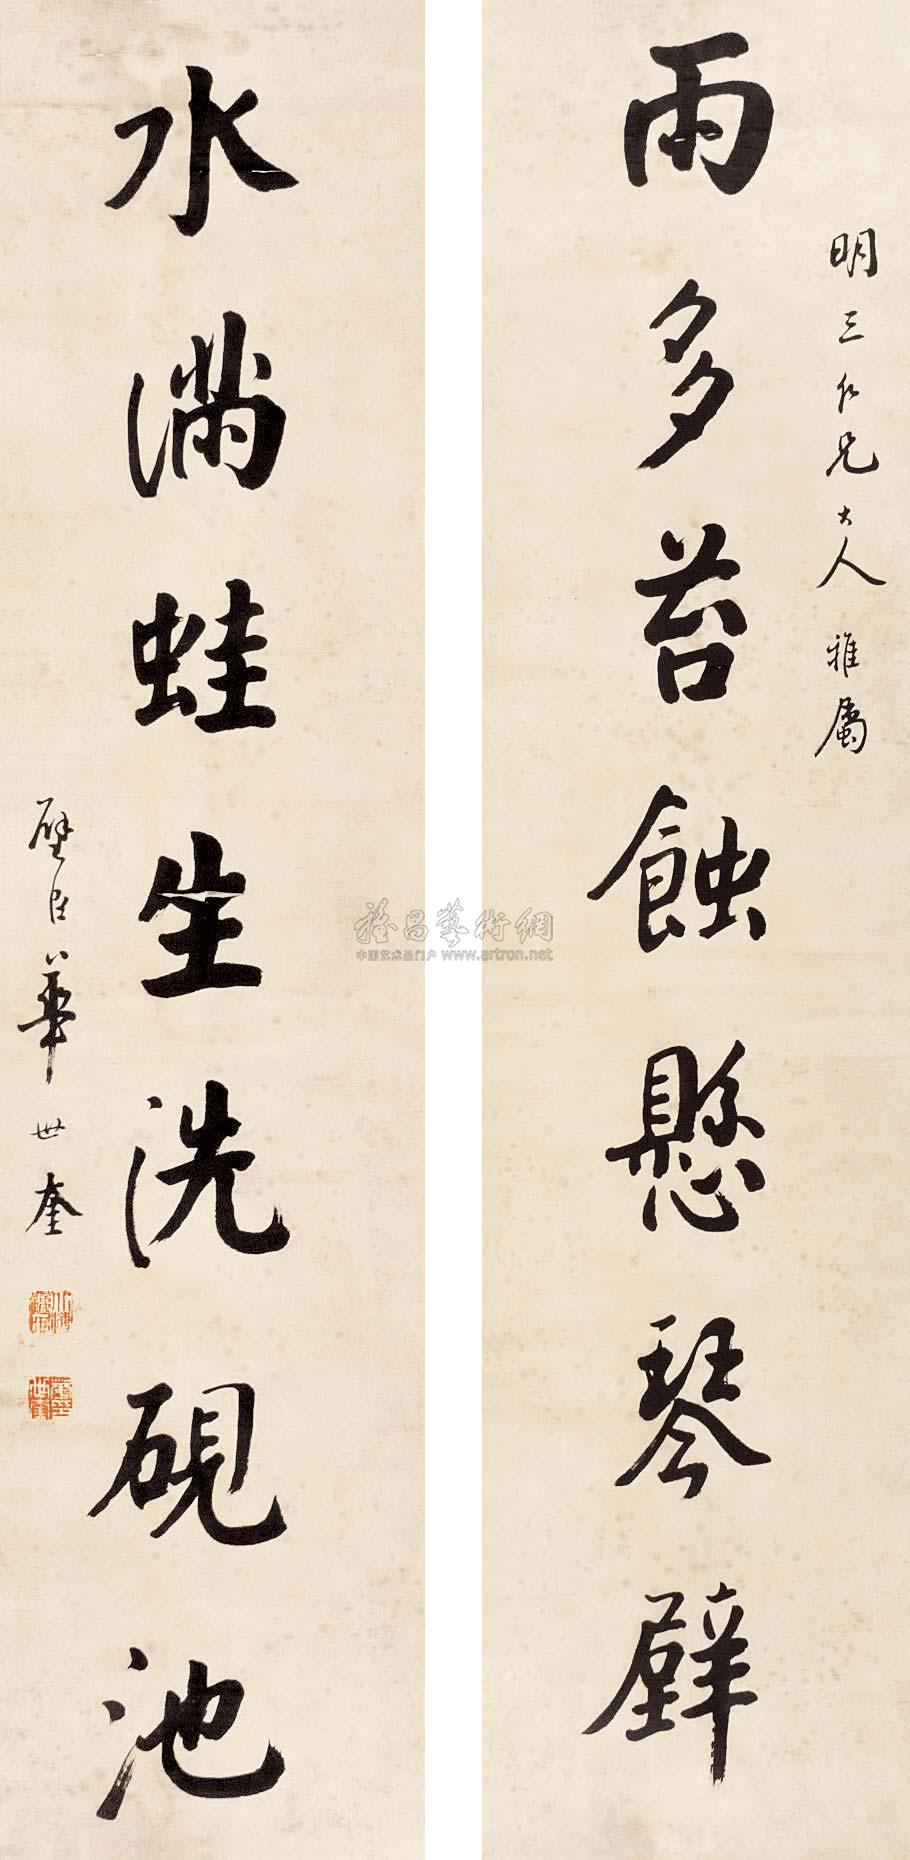 明三仁兄大人雅屬
雨多苔蝕懸琴壁
水滿蛙生洗硯池
璧臣華世奎
雅昌藝術網
中国艺术品门户 www.artron.net